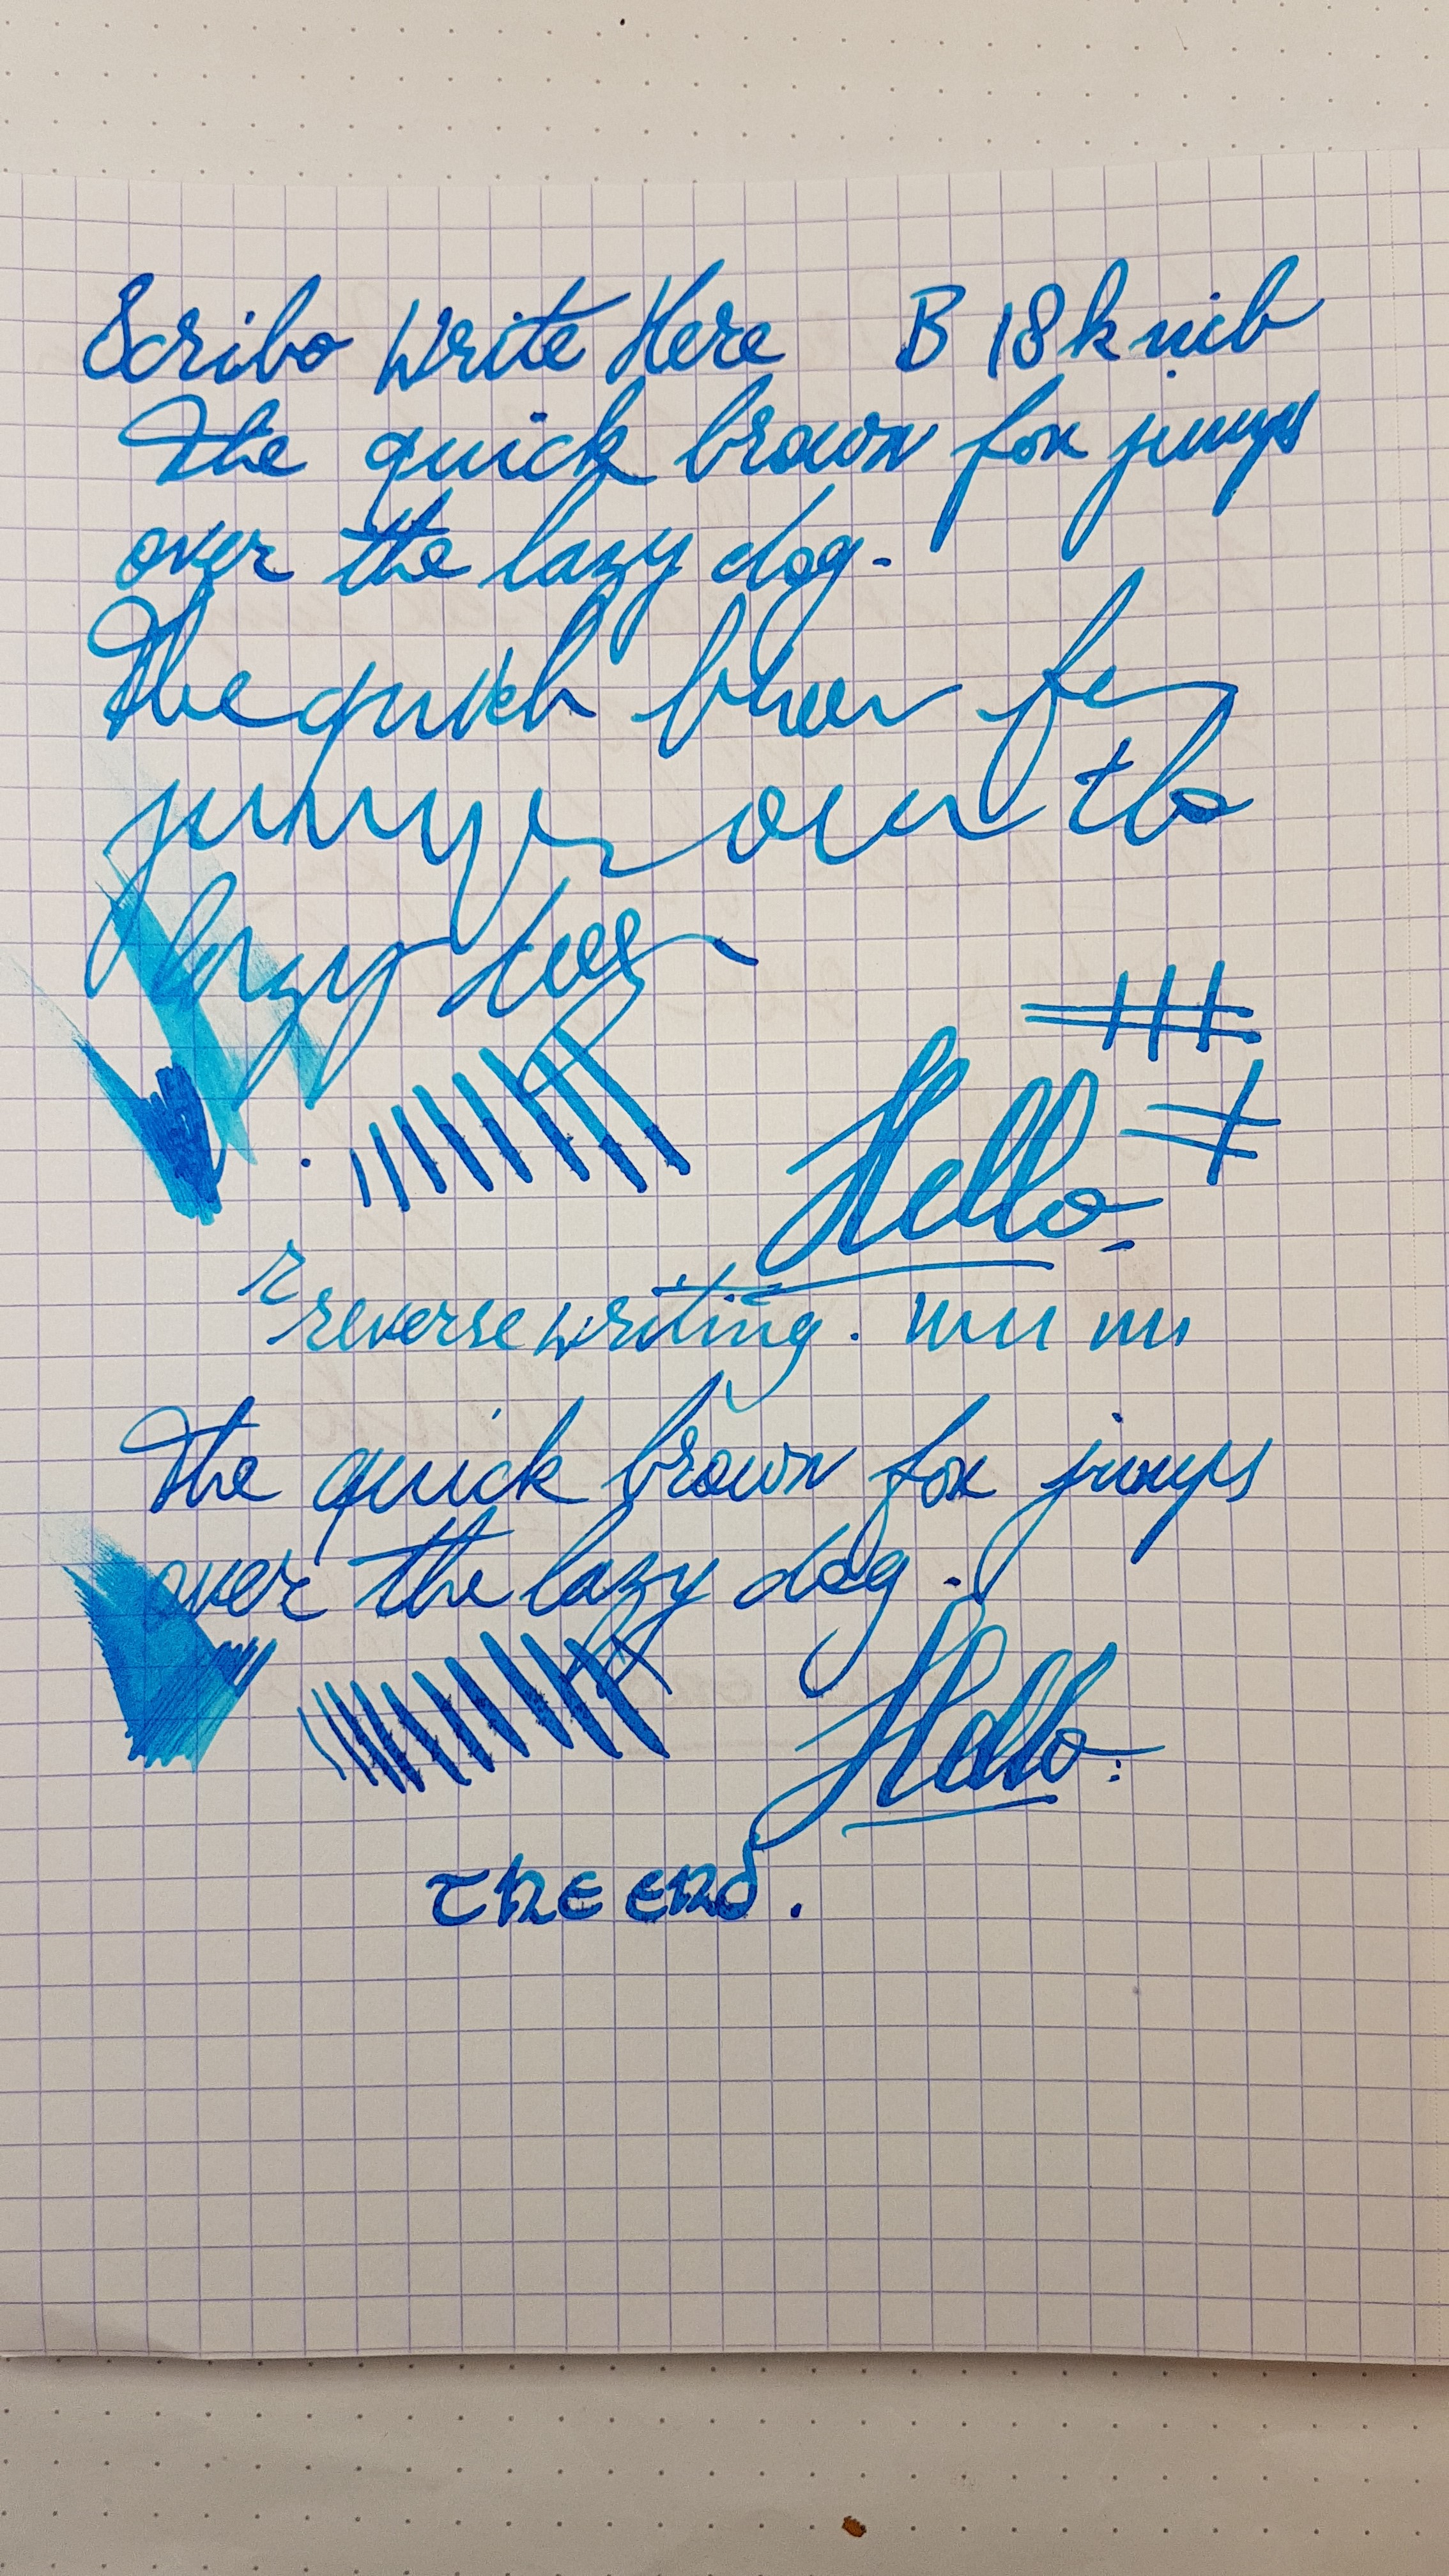 Scribo Write Here B 18k nib
The quick brown fox jumps
over the lazy dog.
The quick brown fox
jumps over the
lazy dog
Hello.
reverse writing.
The quick brown fox jumps
over the lazy dog.
Hello.
The end.